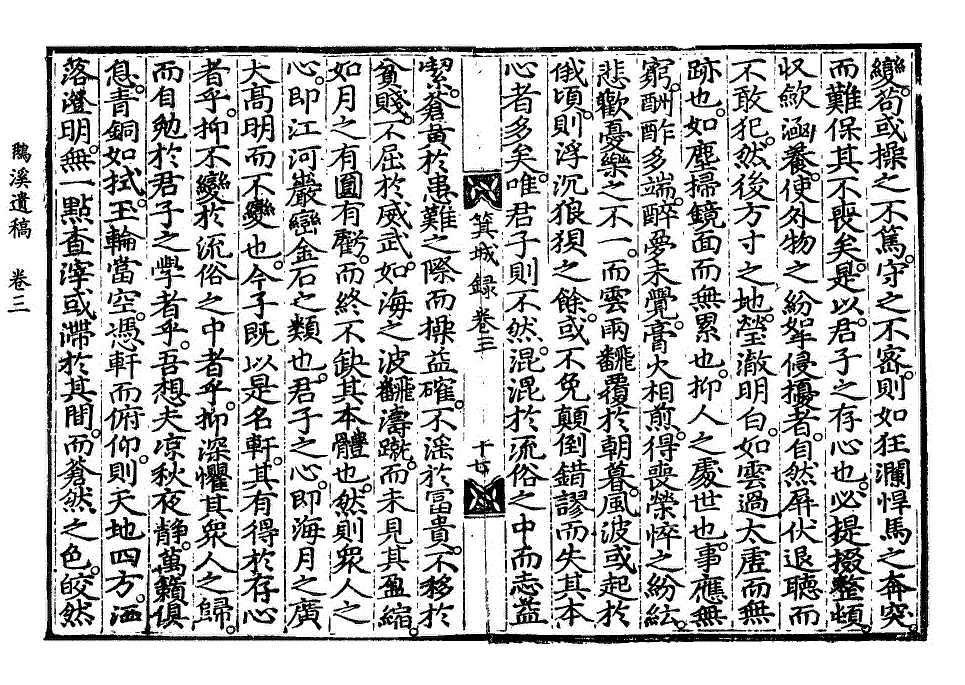 變苟或操之不篤守之不密則如狂瀾悍馬之奔突
而難保其不喪矣是以君子之存心也必提掇整頓
収斂涵養使外物之紛挐侵擾者自然屛伏退聽而
不敢犯然後方寸之地瑩澈明白如雲過太虛而無
跡也如塵掃鏡面而無累也抑人之處世也事應無
窮酬酢多端醉夢未覺膏火相煎得喪榮悴之紛紜
悲歡憂樂之不一而雲雨飜覆於朝暮風波或起於
俄頃則浮沉狼狽之餘或不免顚倒錯謬而失其本
心者多矣唯君子則不然混混於流俗之中而志益
箕城録卷三
十六
潔蒼黃於患難之際而操益確不淫於富貴不移於
貧賤不屈於威武如海之波飜濤蹴而未見其盈縮
如月之有圓有虧而終不缺其本體也然則衆人之
心即江河巖巒金石之類也君子之心即海月之廣
大高明而不變也今子旣以是名軒其有得於存心
者乎抑不變於流俗之中者乎抑深懼其衆人之歸
而自勉於君子之學者乎吾想夫凉秋夜靜萬籟俱
息靑銅如拭玉輪當空憑軒而俯仰則天地四方洒
落澄明無一點査滓或滯於其間而蒼然之色皎然
鵲溪遺稿 卷三